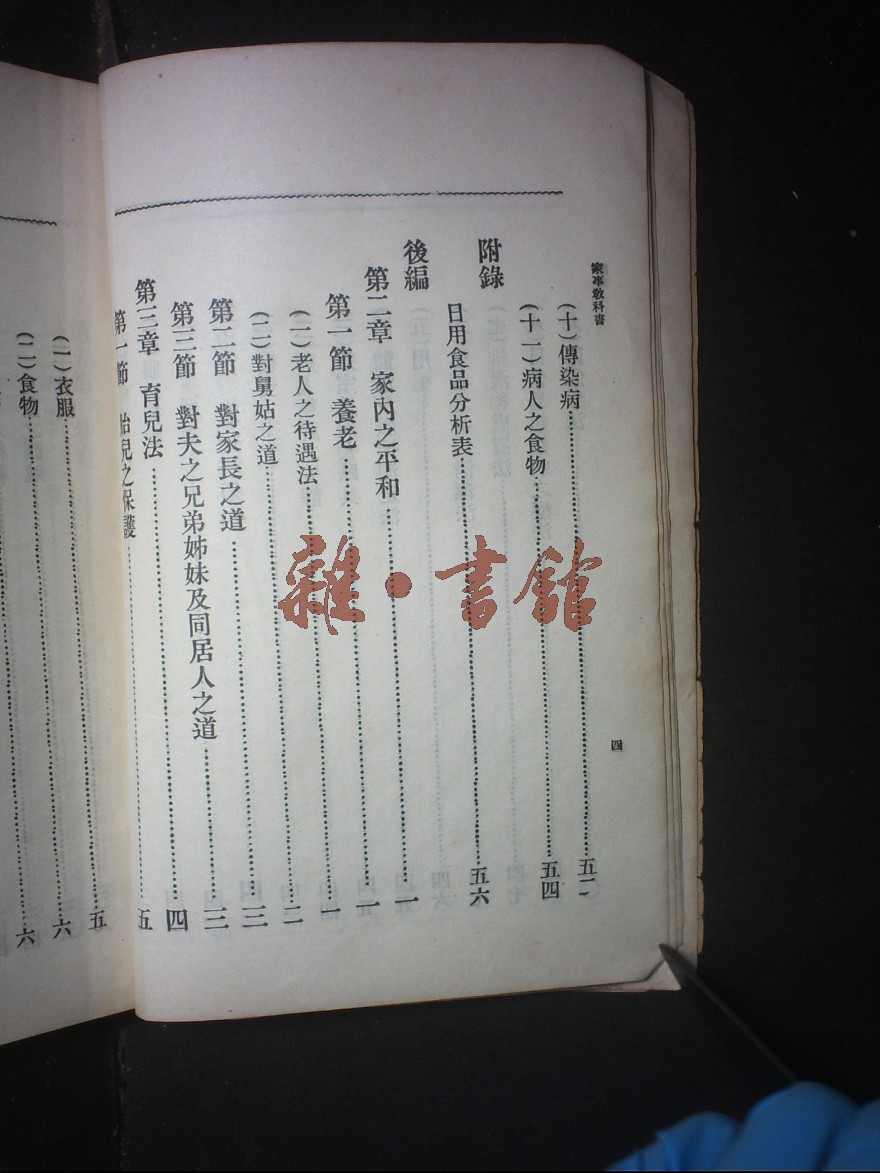 家事教科書
四
(十)傳染病…………五二
(十一)病人之食物…………五四
附錄
日用食品分析表…………五六
後編
第二章 家內之平和…………一
第一節 養老…………一
(一)老人之待遇法…………一
(二)對舅姑之道…………二
第二節 對家長之道…………三
第三節 對夫之兄弟姊妹及同居人之道…………三
第三章 育兒法…………四
第一節 胎兒之保護…………五
(一)衣服…………五
(二)食物…………六
六
雜·書館